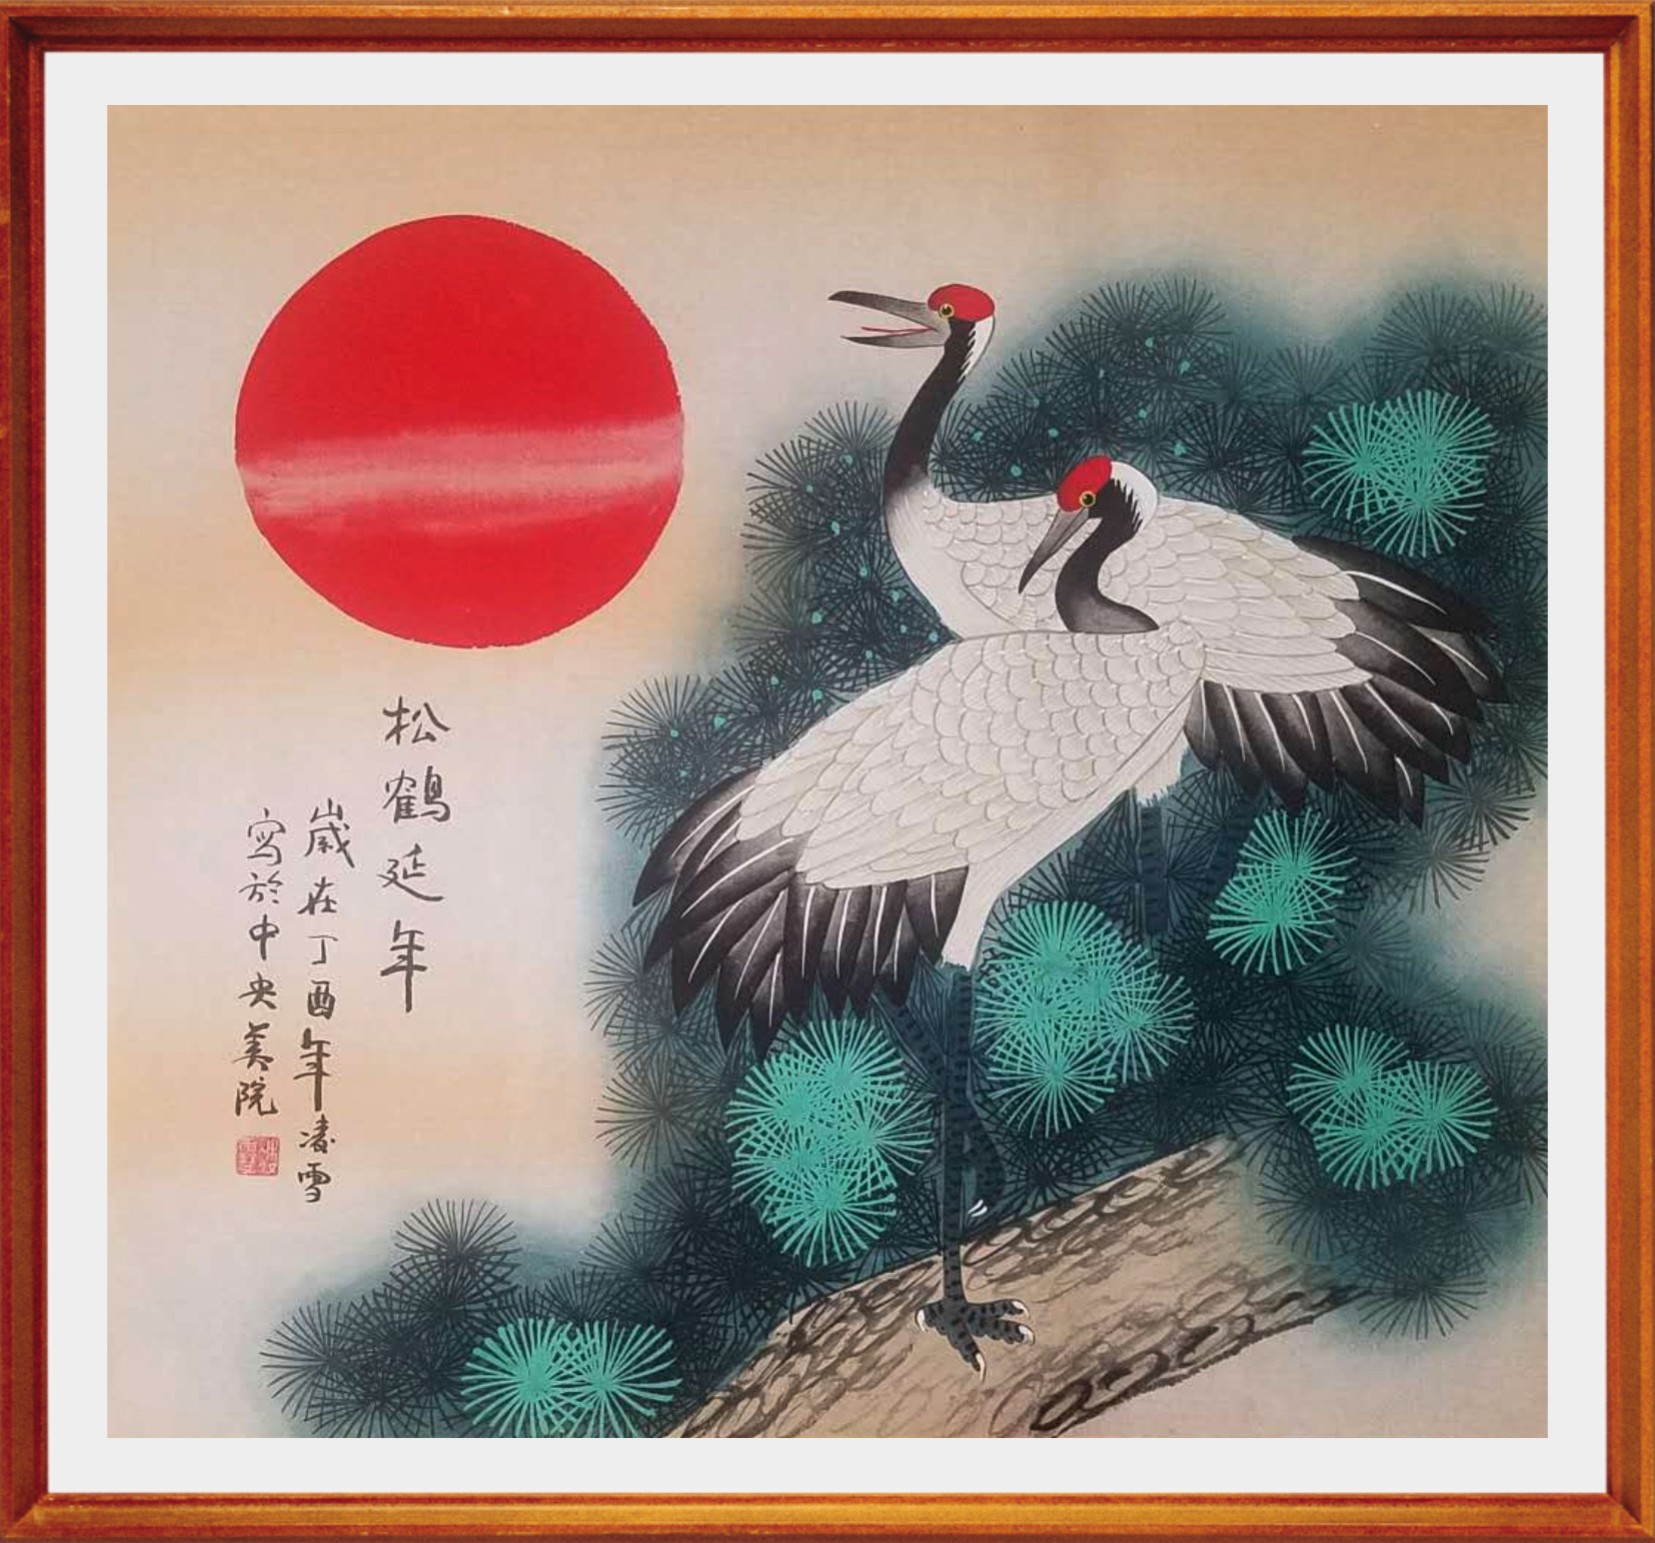 松鶴延年
歲在丁酉年凌雪
寫於中央美院